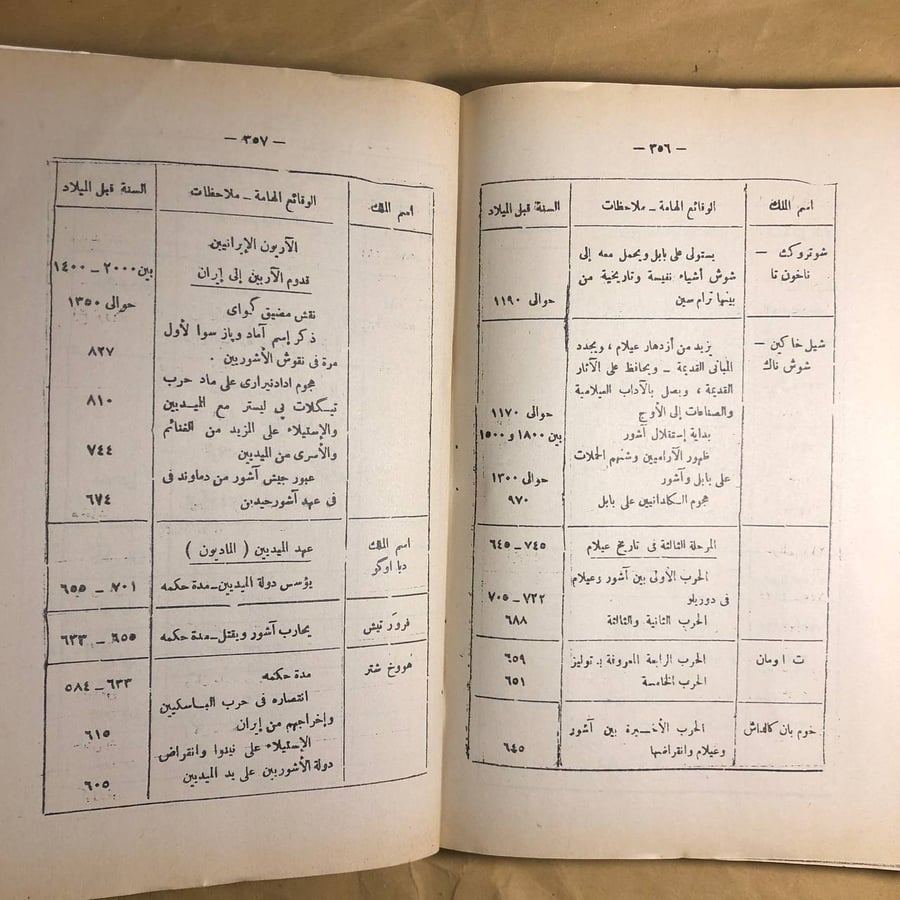 — ٣٥٦ —
اسم الملك
الوقائع الهامة ــ ملاحظات
السنة قبل الميلاد
شوتروك —
ناخون تا
يستولى على بابل ويحمل معه إلى
شوش أشياء نفيسة وتاريخية من
بينها ترام سين
حوالى ١١٩٠
شيل خاكين —
شوش ناك
يزيد من أزدهار عيلام ، ويجدد
المبانى القديمة — ويحافظ على الآثار
القديمة ، ويصل بالآداب العيلامية
والصناعات إلى الأوج
حوالى ١١٧٠
بداية إستقلال آشور
بين ١٨٠٠ و ١٥٠٠
ظهور الآراميين وشنهم الحملات
على بابل وآشور
حوالى ١٣٠٠
هجوم الكلدانيين على بابل
٩٧٠
المرحلة الثالثة فى تاريخ عيلام
٧٤٥ — ٦٤٥
الحرب الأولى بين آشور وعيلام
فى دوريلو
٧٢٢ — ٧٠٥
الحرب الثانية والثالثة
٦٨٨
ت اومان
الحرب الرابعة المعروفة بـ توليز
٦٥٩
الحرب الخامسة
٦٥١
خوم بان كالداش
الحرب الأخـيرة بين آشور
وعيلام وانقراضها
٦٤٥
— ٣٥٧ —
اسم الملك
الوقائع الهامة ــ ملاحظات
السنة قبل الميلاد
الآريون الإيرانيين
قدوم الآريين إلى إيران
بين ٢٠٠٠ — ١٤٠٠
نقش مضيق كواى
حوالى ١٣٥٠
ذكر إسم آماد وپاز سوا لأول
مرة فى نقوش الأشوريين .
٨٢٧
هجوم ادادنيرارى على ماد حرب
٨١٠
تيـكلات پى ليستر مع الميـديين
والإستيلاء على المزيد من الغنائم
والأسرى من الميديين
٧٤٤
عبور جيش آشور من دماوند فى
فى عهد آشورحيدين
٦٧٤
اسم الملك
عهد الميديين ( الماديون )
ديا اوكو
يؤسس دولة الميديين—مدة حكمه
٧٠١ — ٦٥٥
فرور تيش
يحارب آشور ويقتل—مدة حكمه
٦٥٥ — ٦٣٣
هووخ شتر
مدة حكمه
٦٣٣ — ٥٨٤
انتصاره فى حرب الساسكيين
وإخراجهم من إيران
٦١٥
الإستيلاء على نينوا وانقراض
دولة الأشوريين على يد الميديين
٦٠٥